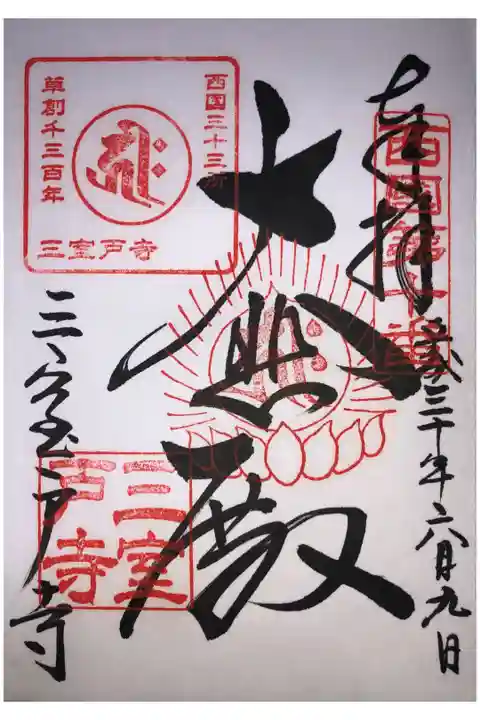 奉拝
西国第十番
平成三十年六月九日
大悲殿
西国三十三所
草創千三百年
三室戸寺
三室戸寺
三室戸寺